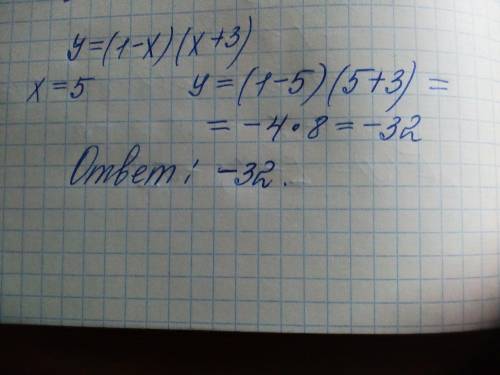 y=(1-x)(x+3)
x=5 y=(1-5)(5+3)=
=-4·8=-32
Ответ: -32.